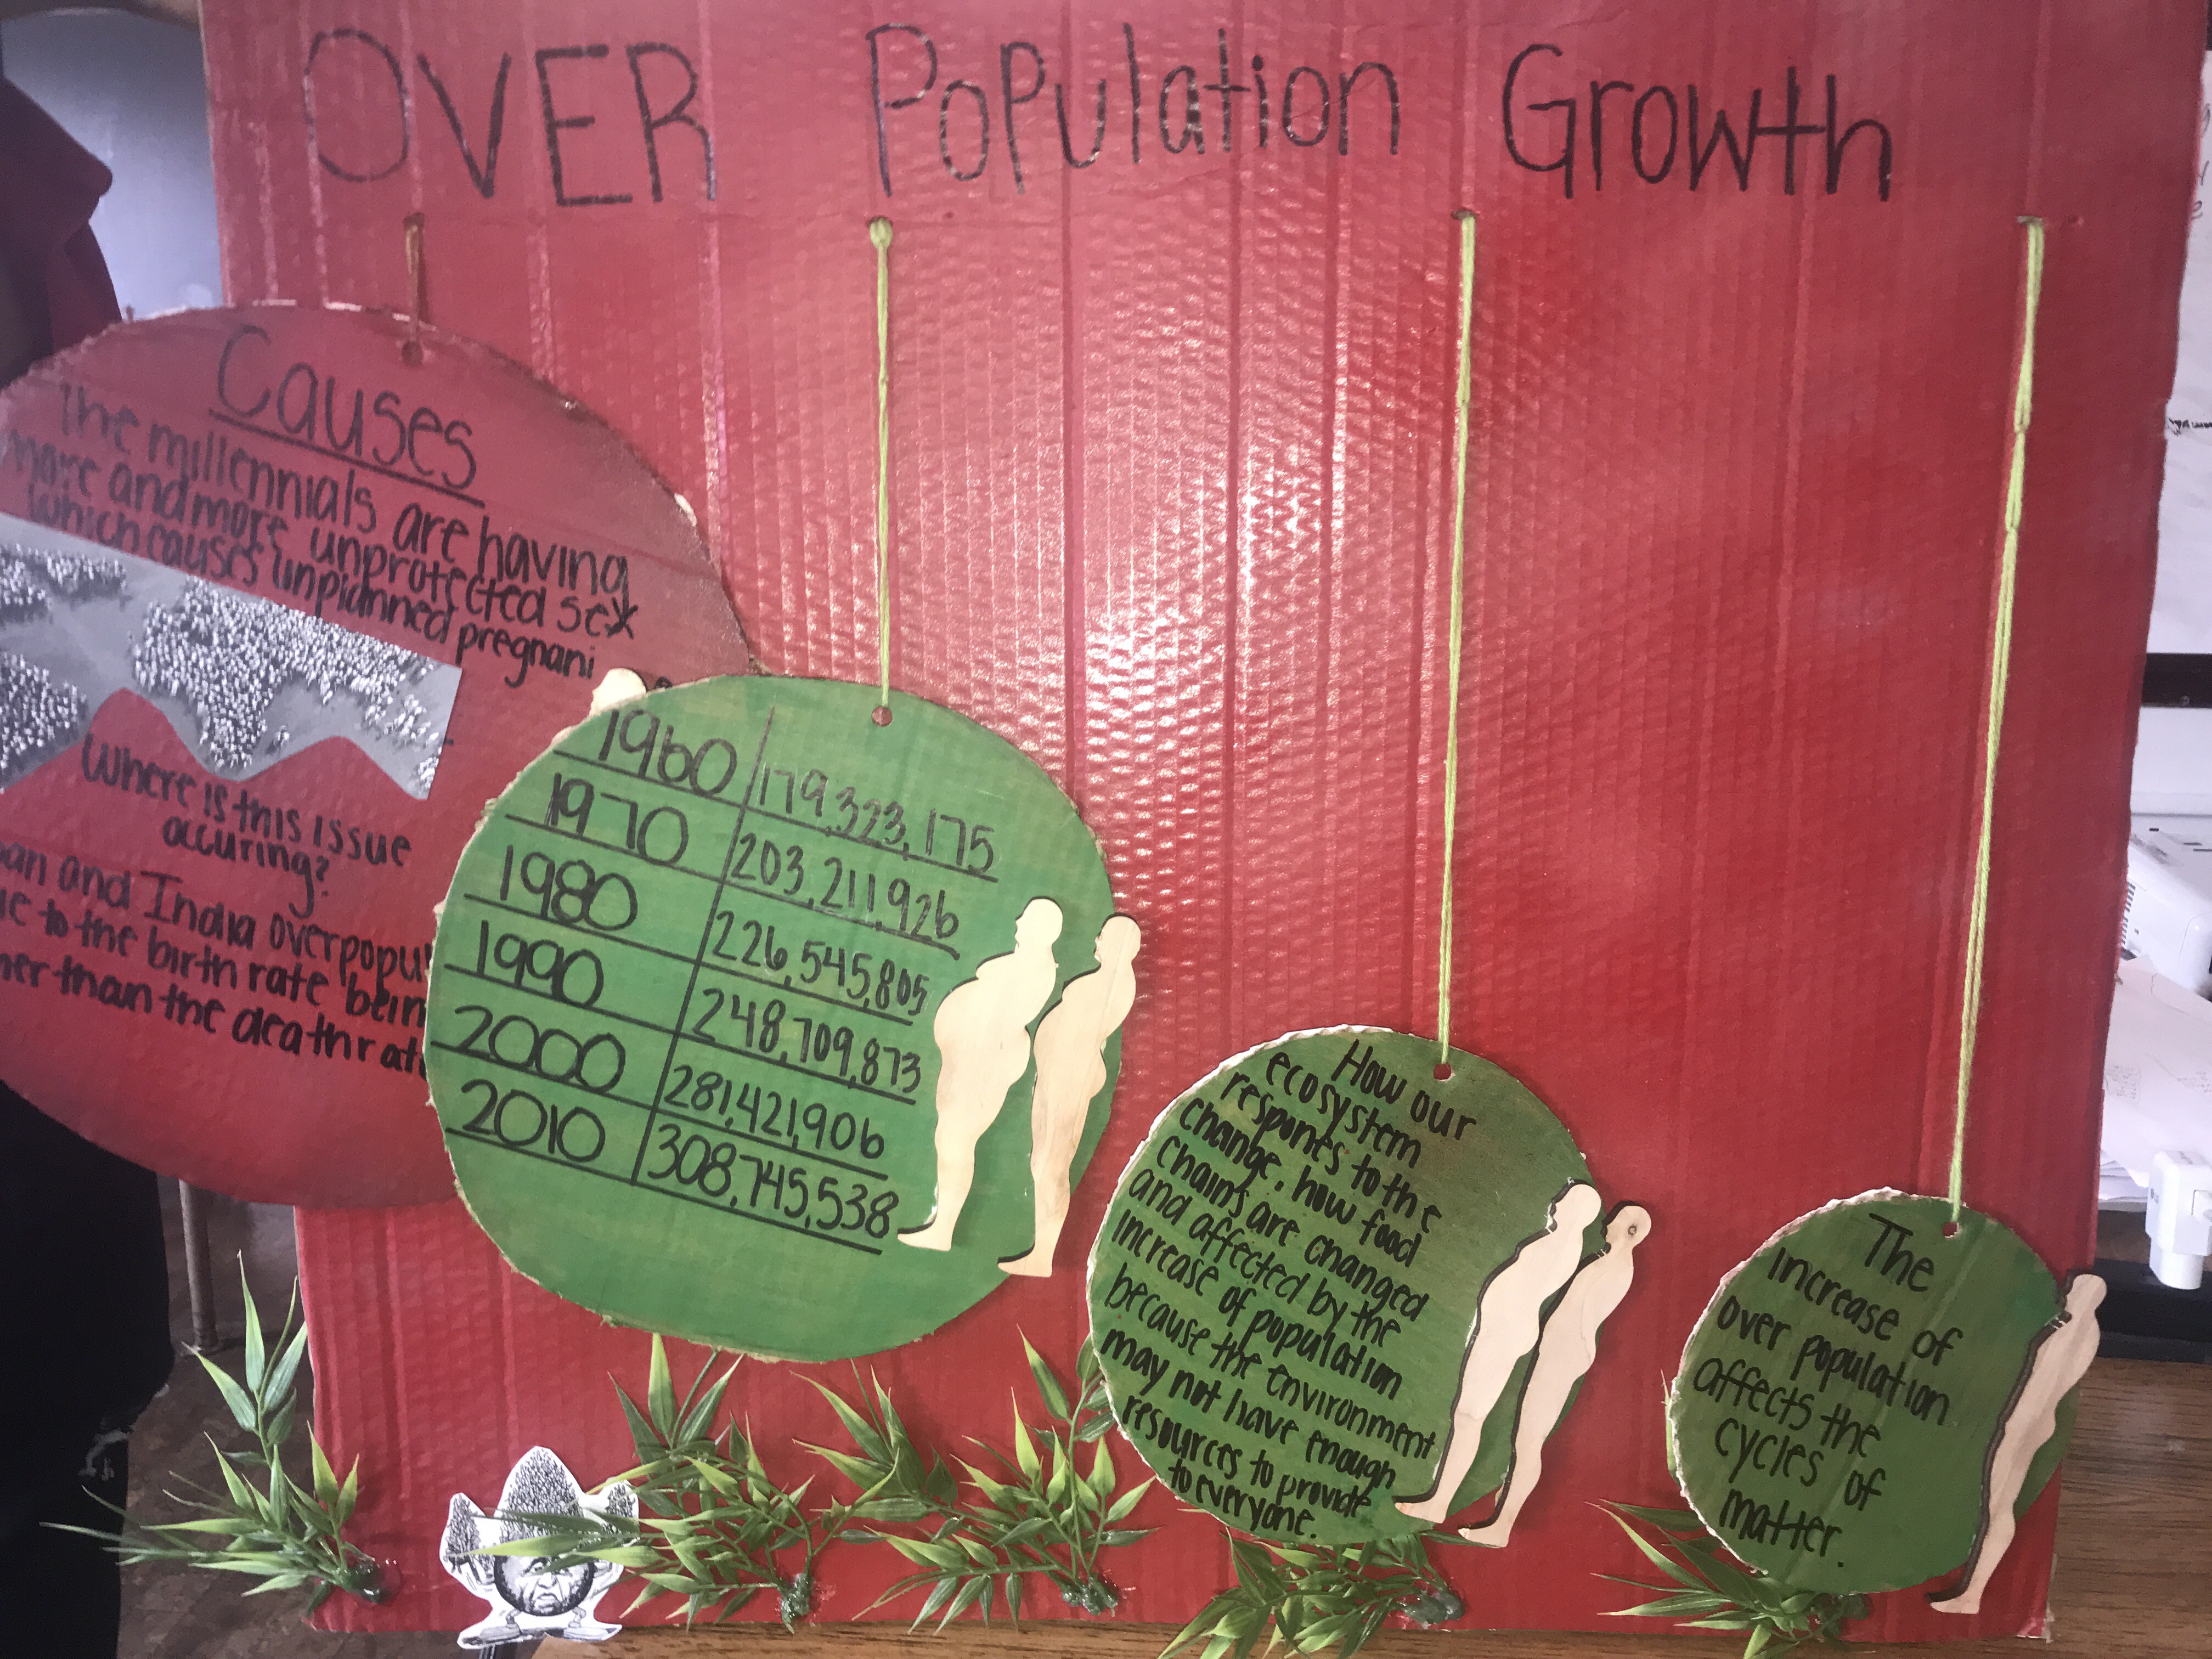 OVER Population Growth
Causes
The millennials are having
more and more unprotected sex
which causes unplanned pregnani
Where is this issue
occuring?
and India overpopu
to the birth rate bein
than the death rat
1960 179,323,175
1970 203,211,926
1980 226,545,805
1990 248,709,873
2000 281,421,906
2010 308,745,538
How our
ecosystem
respontes to the
change, how food
chains are changed
and affected by the
increase of population
because the environment
may not have enough
resources to provide
to everyone.
The
increase of
over population
affects the
cycles of
matter.